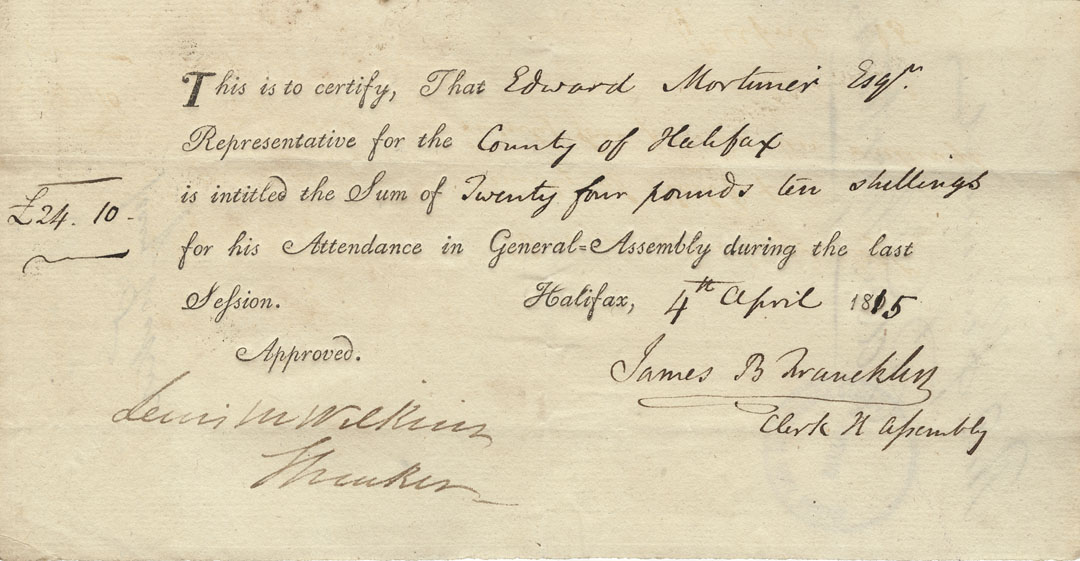 This is to certify, That Edward Mortimer Esqr.
Representative for the County of Halifax
is intitled the Sum of Twenty four pounds ten shillings
£24. 10 -
for his Attendance in General=Assembly during the last
Seſsion. Halifax, 4th April 1815
Approved.
James B Francklin
Clerk H Aſsembly
Lewis M Wilkins
Speaker